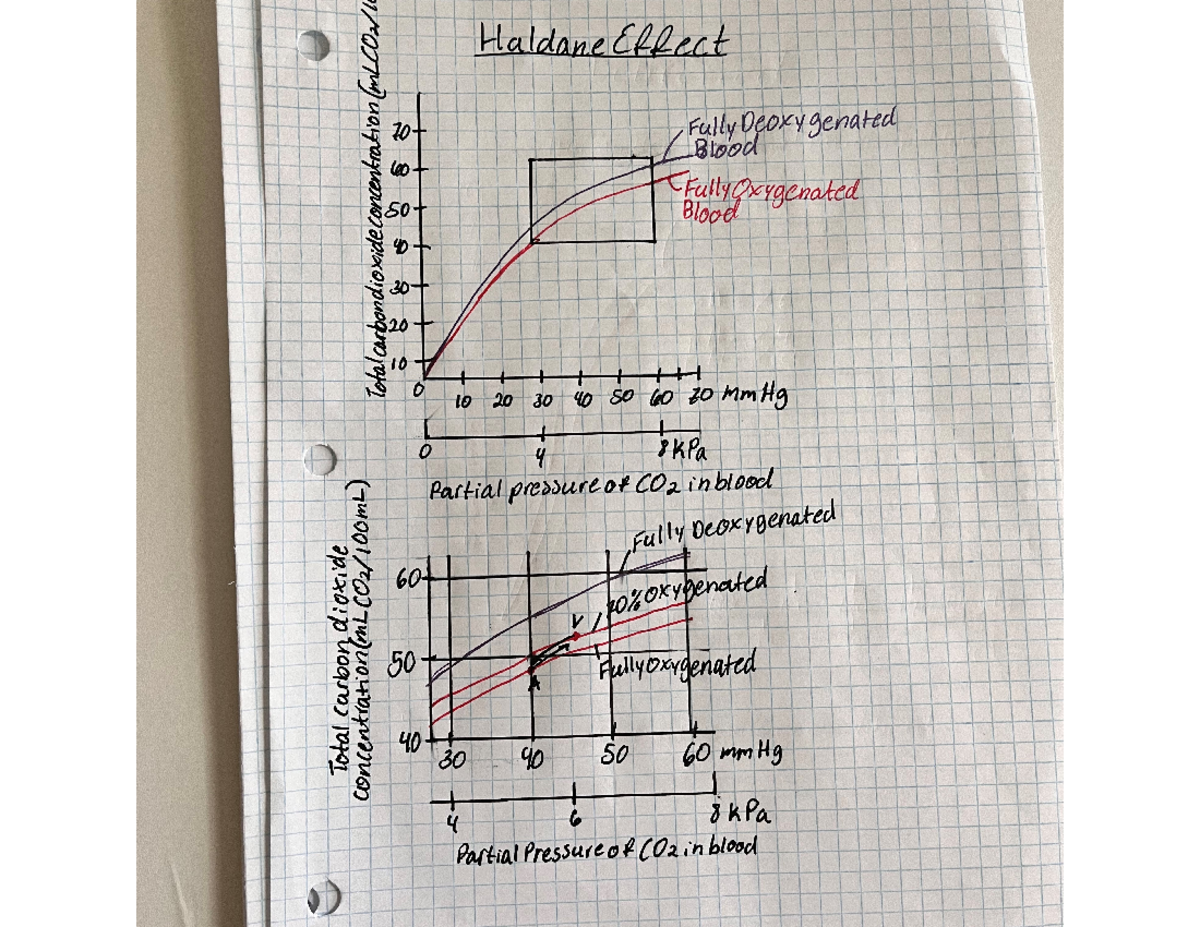 Haldane Effect
Total carbon dioxide concentration (mLCO2/10
70
60
50
40
30
20
10
0
Fully Deoxygenated
Blood
Fully Oxygenated
Blood
10 20 30 40 50 60 70 mmHg
0 4 8 kPa
Partial pressure of CO2 in blood
Total carbon dioxide
concentration (mLCO2/100mL)
60
50
40
Fully Deoxygenated
70% oxygenated
V
Fully Oxygenated
A
30 40 50 60 mmHg
4 6 8 kPa
Partial Pressure of CO2 in blood